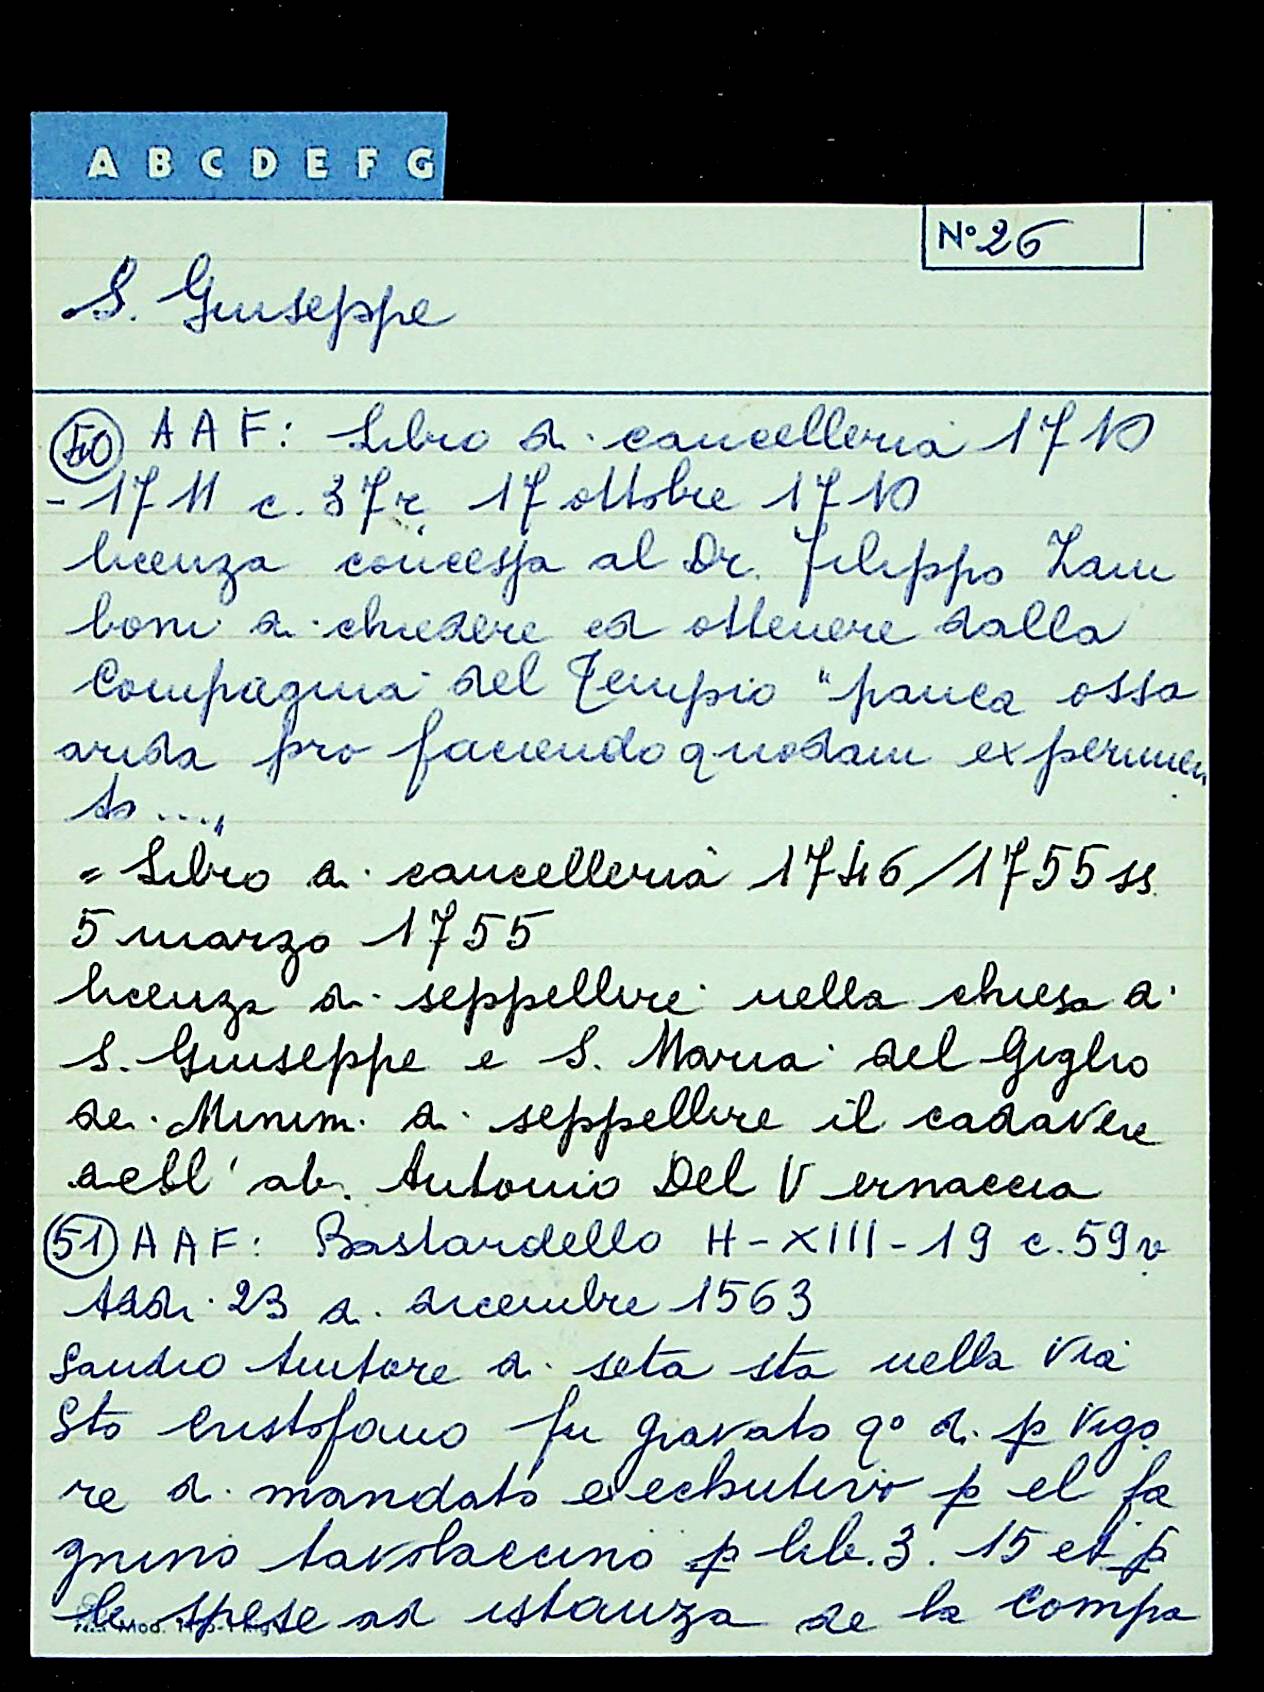 A B C D E F G
N° 26
S. Giuseppe
50 A A F: Libro di cancelleria 1710
- 1711 c. 37r. 17 ottobre 1710
licenza concessa al Dr. Filippo Zam
boni di chiedere ed ottenere dalla
Compagnia del Tempio "pauca ossa
arida pro faciendo quodam experimen
to ...."
= Libro di cancelleria 1746/1755 ss.
5 marzo 1755
licenza di seppellire nella chiesa di
S. Giuseppe e S. Maria del Giglio
dei Minimi di seppellire il cadavere
dell' ab. Antonio Del Vernaccia
51 A A F: Bastardello H-XIII-19 c. 59v
Addi 23 di dicembre 1563
Sandro tintore di seta sta nella via
Sto Cristofano fu gravato q° di p vigo
re di mandato exechutivo p el fa
gnino tavolaccino p lib. 3. 15 et p
le spese ad istanza de la compa
Mod.